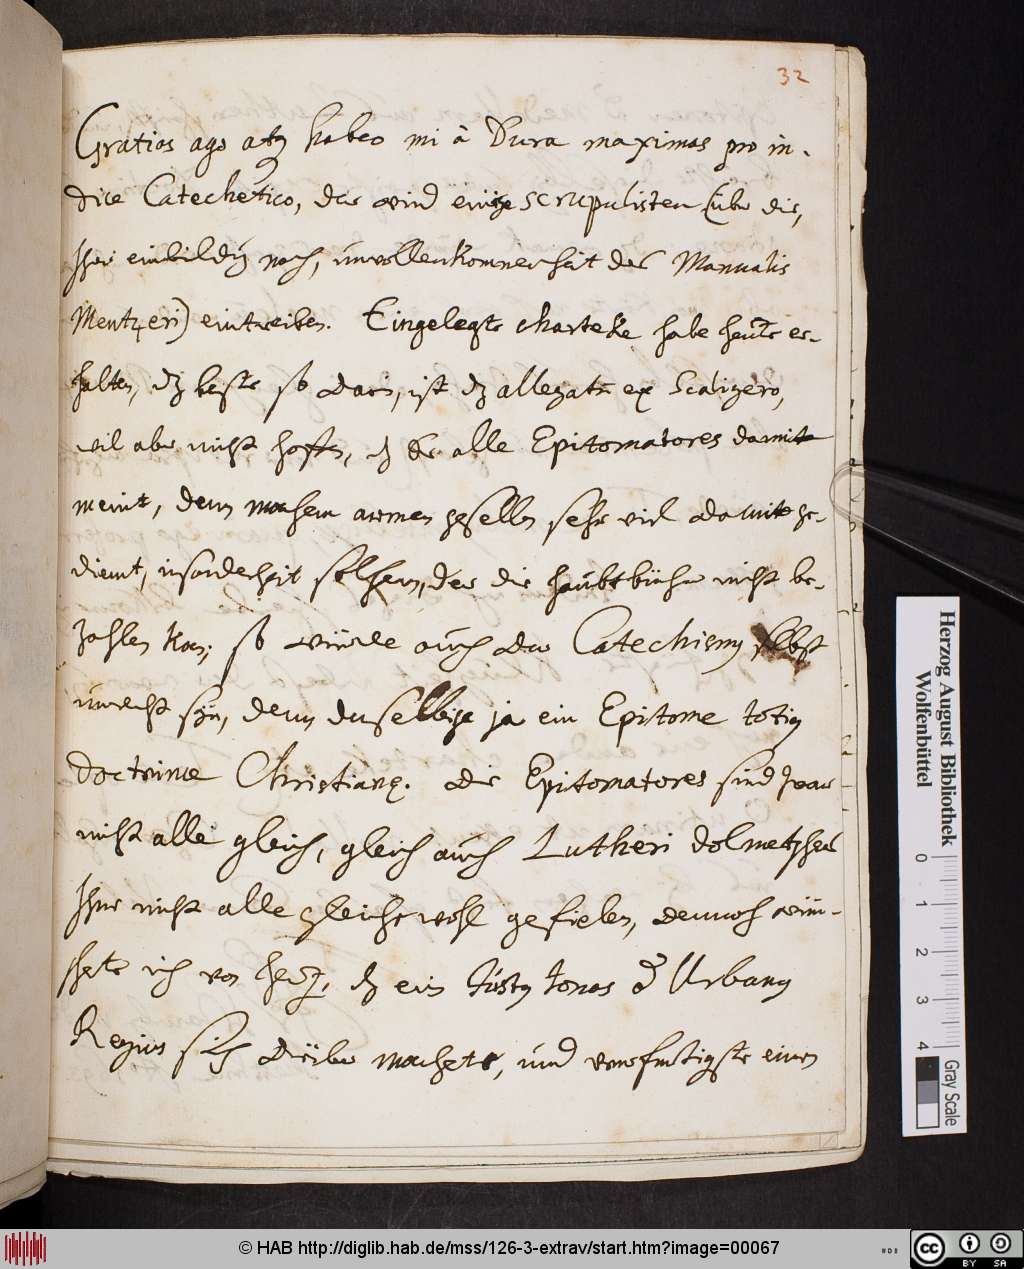 32
Gratias ago atq habeo mi à Dura maximas pro in-
dice Catechetico, der wird einige scrupulisten (über die,
Ihrer einbildung nach, unvollenkomnerheit des Manualis
Mentzeri) eintreiben. Eingelegte charteke habe heute er-
halten, dz beste so darin, ist dz allegatum ex Scaligero,
wil aber nicht hoffen, dz Er alle Epitomatores damit
meint, denn manchem armen gesellen sehr viel damit ge-
dienet, insonderheit solchem, der die haubtbücher nicht be-
zahlen kan; so würde auch der Catechismus selbst
unrecht sein, denn derselbige ja ein Epitome totius
doctrinae Christianę. Die Epitomatores sind zwar
nicht alle gleich, gleich auch Lutheri dolmetscher
Ihme nicht alle gleiche wohl gefielen, dennoch wün-
schete ich von hertz, dz ein Justus Jonas oder Urbanus
Regius sich drüber machete, und verfertigste einen
Herzog August Bibliothek
Wolfenbüttel
0 1 2 3 4
Gray Scale
© HAB http://diglib.hab.de/mss/126-3-extrav/start.htm?image=00067
HAB
CC BY SA